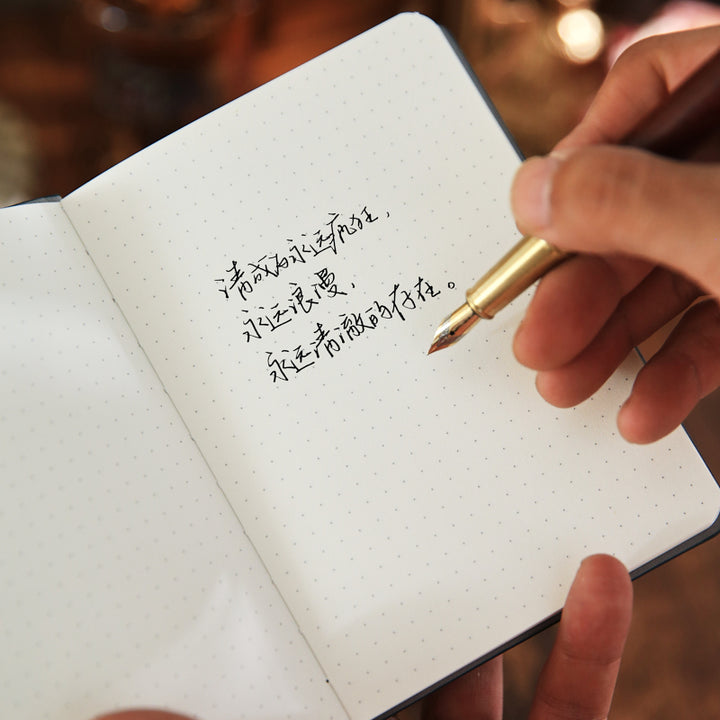 请成为永远疯狂，
永远浪漫，
永远清澈的存在。